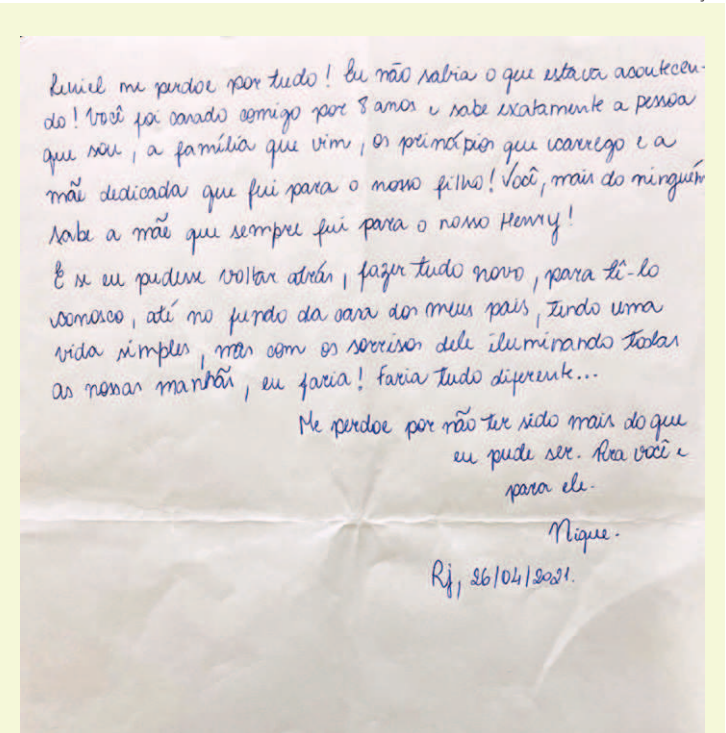 Leniel me perdoe por tudo! Eu não sabia o que estava acontecen-
do! Você foi casado comigo por 8 anos e sabe exatamente a pessoa
que sou, a família que vim, os princípios que carrego e a
mãe dedicada que fui para o nosso filho! Você, mais do ninguém
sabe a mãe que sempre fui para o nosso Henry!
E se eu pudesse voltar atrás, fazer tudo novo, para tê-lo
conosco, até no fundo da casa dos meus pais, tendo uma
vida simples, mas com os sorrisos dele iluminando todas
as nossas manhãs, eu faria! Faria tudo diferente...
Me perdoe por não ter sido mais do que
eu pude ser. Pra você e
para ele.
Nique.
Rj, 26/04/2021.